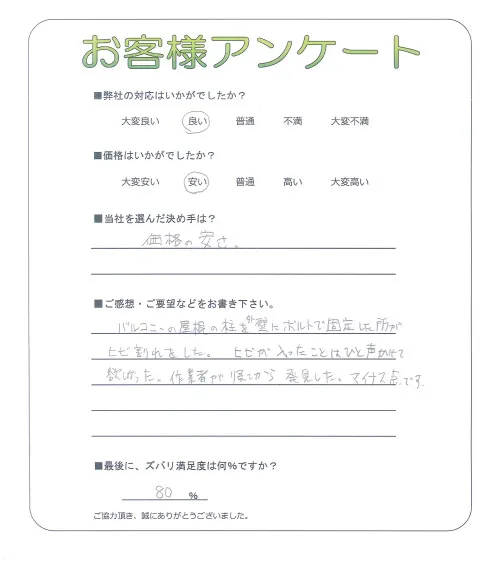 お客様アンケート
■弊社の対応はいかがでしたか？
大変良い 良い 普通 不満 大変不満
■価格はいかがでしたか？
大変安い 安い 普通 高い 大変高い
■当社を選んだ決め手は？
価格の安さ。
■ご感想・ご要望などをお書き下さい。
バルコニーの屋根の柱を外壁にボルトで固定した所が
ヒビ割れました。ヒビが入ったことはひと声かせて
欲しかった。作業者が帰ってから発見した。マイナス点です。
■最後に、ズバリ満足度は何％ですか？
80 %
ご協力頂き、誠にありがとうございました。